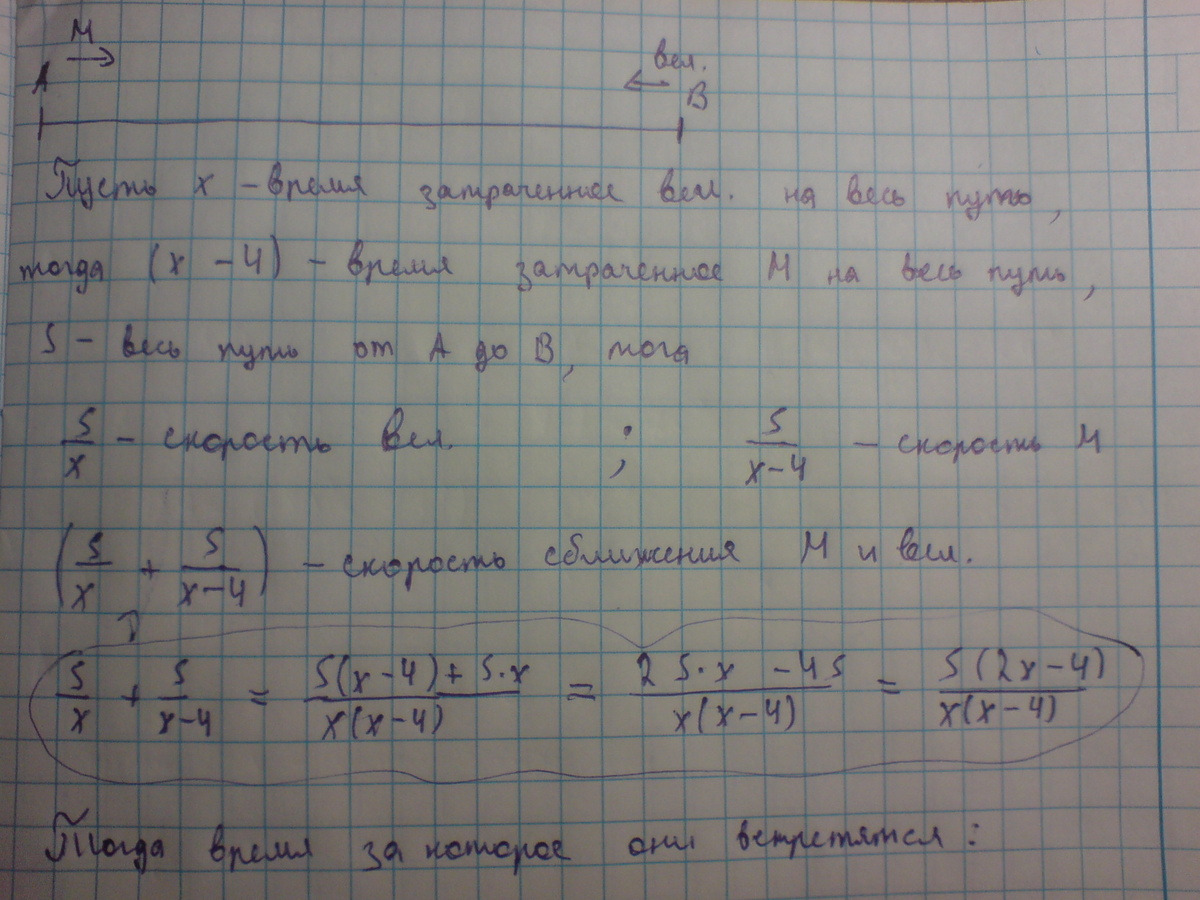 М →
вел. ←
A B
Пусть x – время затраченное вел. на весь путь,
тогда (x – 4) – время затраченное М на весь путь,
S – весь путь от A до B, тога
S/x – скорость вел. ; S/(x–4) – скорость М
(S/x + S/(x–4)) – скорость сближения М и вел.
S/x + S/(x–4) = (S(x–4)+S·x)/(x(x–4)) = (2S·x –4S)/(x(x–4)) = S(2x–4)/(x(x–4))
Тогда время за которое они встретятся: